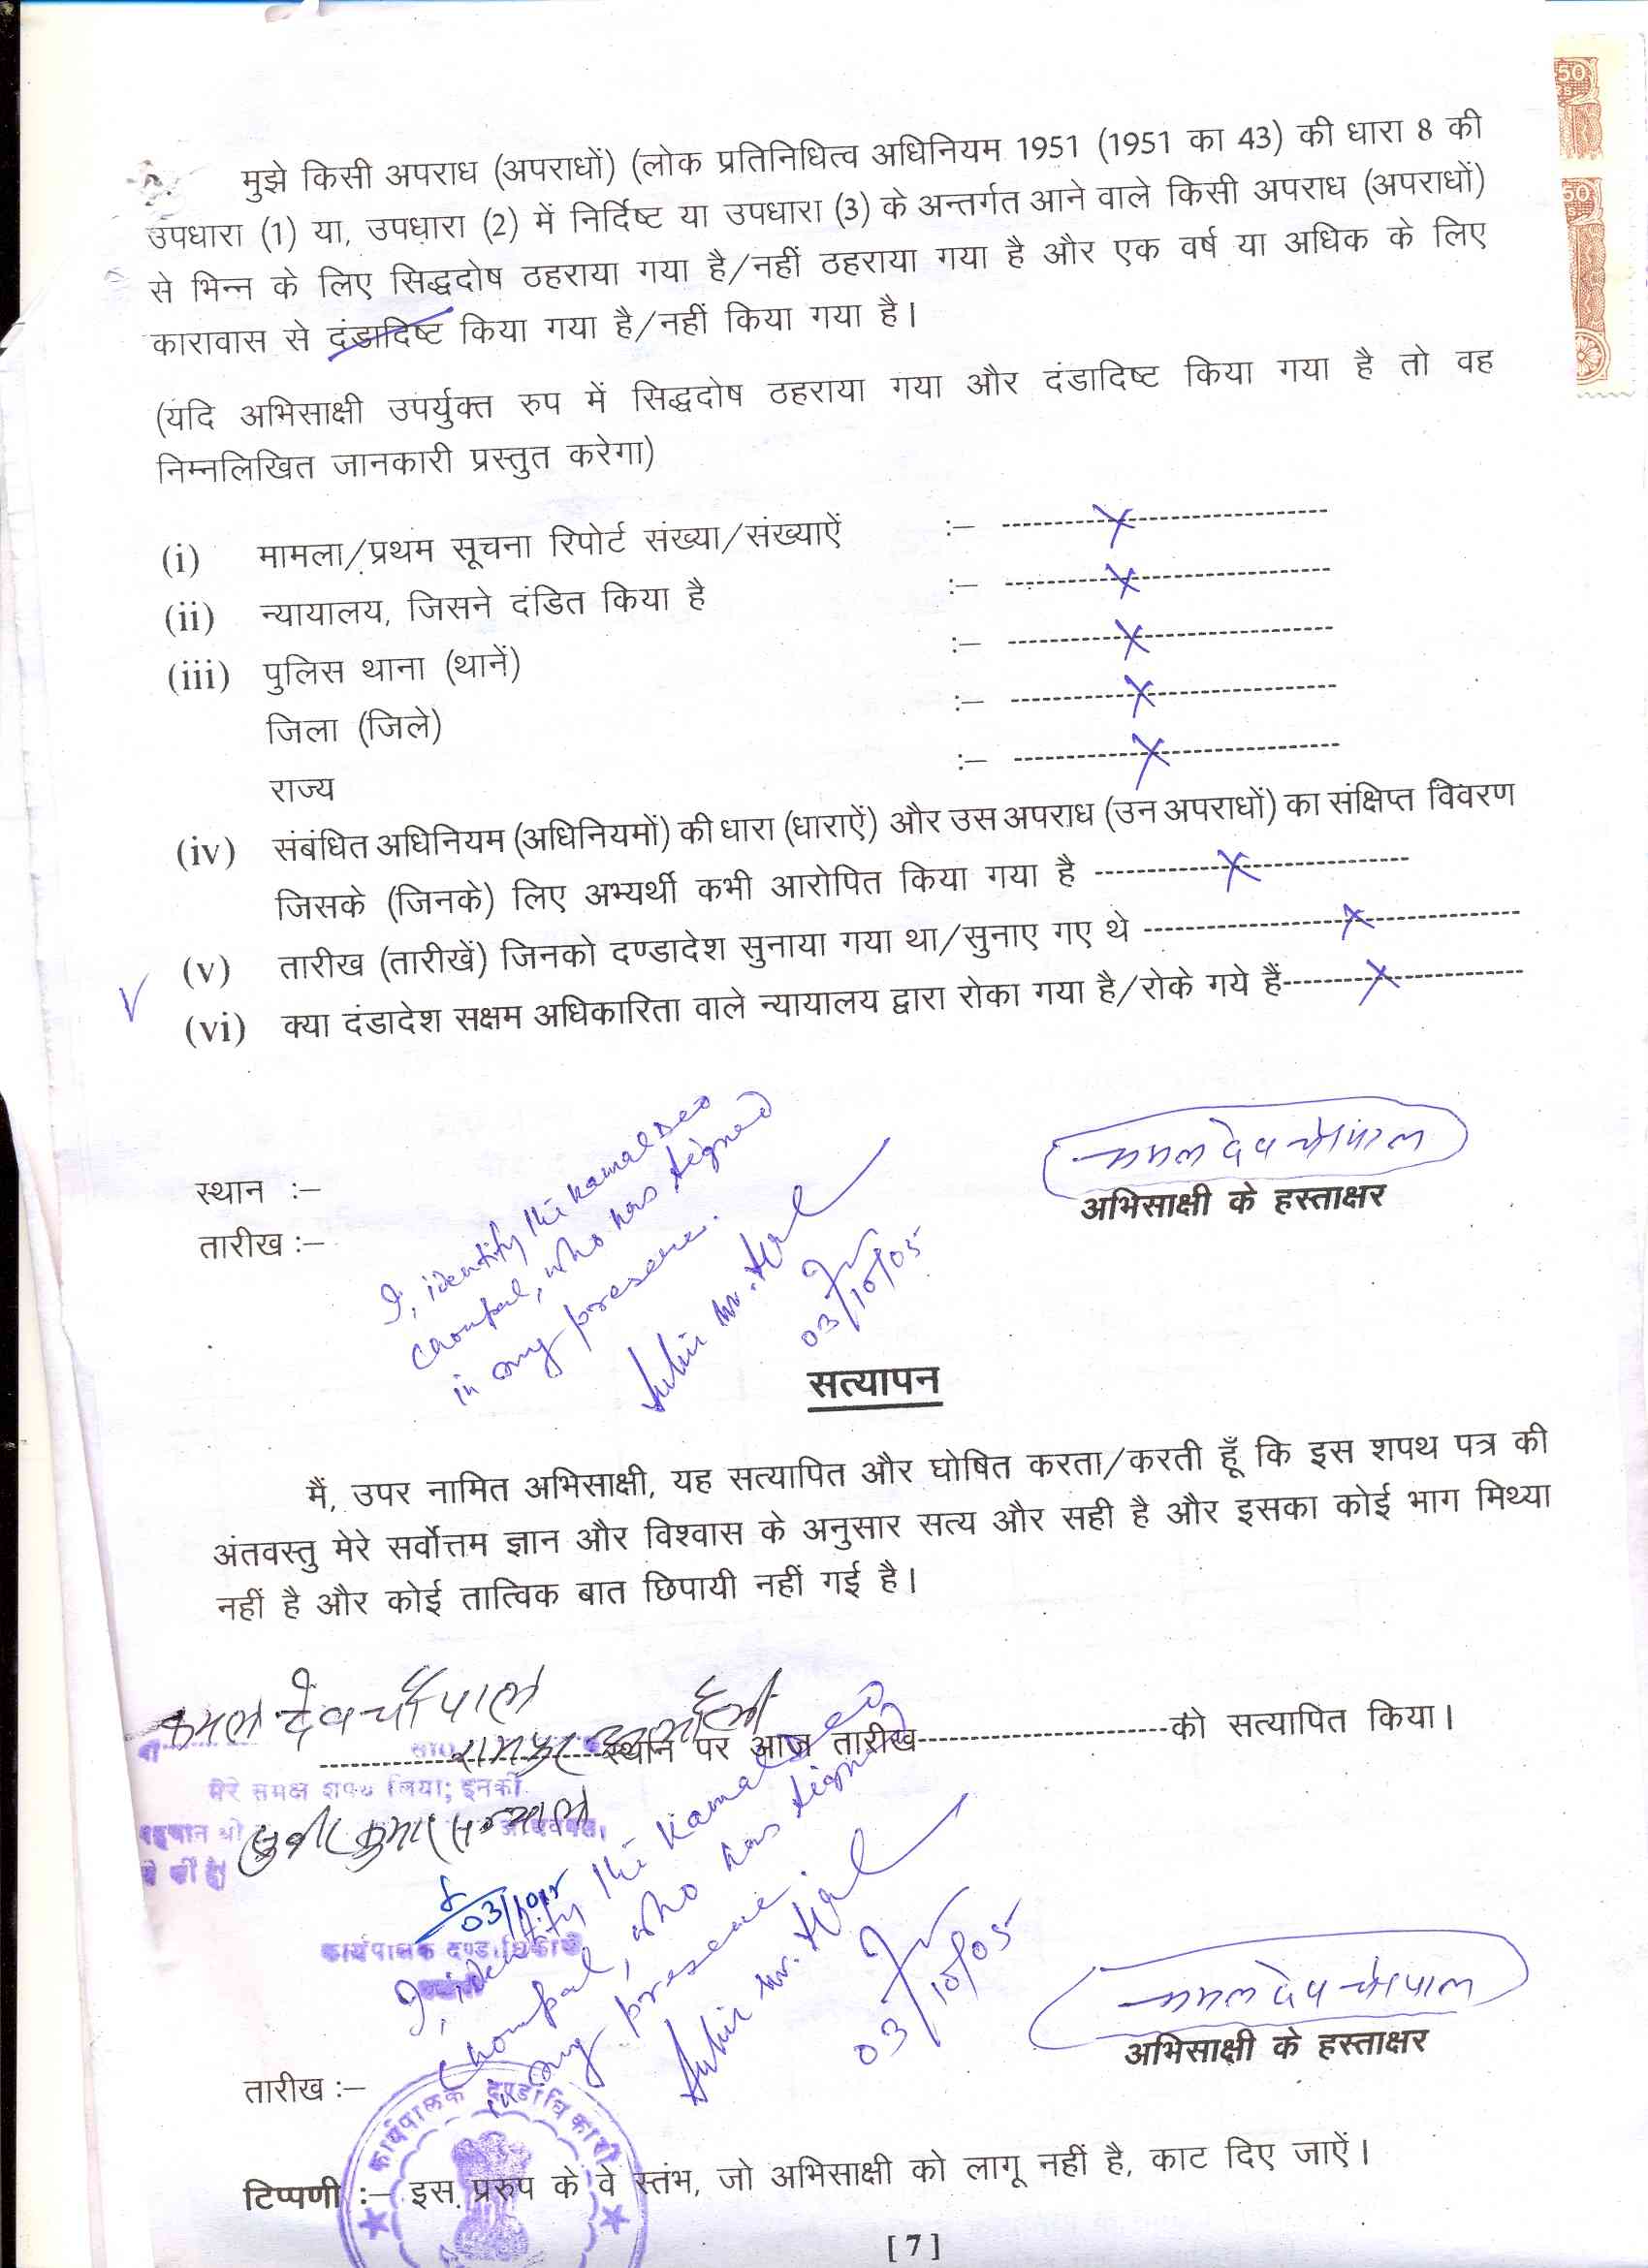 मुझे किसी अपराध (अपराधों) (लोक प्रतिनिधित्व अधिनियम 1951 (1951 का 43) की धारा 8 की
उपधारा (1) या, उपधारा (2) में निर्दिष्ट या उपधारा (3) के अन्तर्गत आने वाले किसी अपराध (अपराधों)
से भिन्न के लिए सिद्धदोष ठहराया गया है/नहीं ठहराया गया है और एक वर्ष या अधिक के लिए
कारावास से दंडादिष्ट किया गया है/नहीं किया गया है।
(यदि अभिसाक्षी उपर्युक्त रुप में सिद्धदोष ठहराया गया और दंडादिष्ट किया गया है तो वह
निम्नलिखित जानकारी प्रस्तुत करेगा)
(i) मामला/प्रथम सूचना रिपोर्ट संख्या/संख्याऐं :– ---------- X ----------
(ii) न्यायालय, जिसने दंडित किया है :– ---------- X ----------
(iii) पुलिस थाना (थानें) :– ---------- X ----------
जिला (जिले) :– ---------- X ----------
राज्य :– ---------- X ----------
(iv) संबंधित अधिनियम (अधिनियमों) की धारा (धाराऐं) और उस अपराध (उन अपराधों) का संक्षिप्त विवरण
जिसके (जिनके) लिए अभ्यर्थी कभी आरोपित किया गया है ---------- X ----------
(v) तारीख (तारीखें) जिनको दण्डादेश सुनाया गया था/सुनाए गए थे ---------- X ----------
(vi) क्या दंडादेश सक्षम अधिकारिता वाले न्यायालय द्वारा रोका गया है/रोके गये हैं ---------- X ----------
कमल देव चौपाल
अभिसाक्षी के हस्ताक्षर
स्थान :–
तारीख :–
I, identify the Kamal Deo
Choupal, who has signed
in my presence.
03/10/05
सत्यापन
मैं, उपर नामित अभिसाक्षी, यह सत्यापित और घोषित करता/करती हूँ कि इस शपथ पत्र की
अंतवस्तु मेरे सर्वोत्तम ज्ञान और विश्वास के अनुसार सत्य और सही है और इसका कोई भाग मिथ्या
नहीं है और कोई तात्विक बात छिपायी नहीं गई है।
कमल देव चौपाल
----------स्थान पर आज तारीख----------को सत्यापित किया।
मेरे समक्ष शपथ लिया; इनकी
पहचान श्री सुधीर कुमार
ने की है।
03/10/05
कार्यपालक दण्डाधिकारी
I, identify the Kamal Deo
Choupal, who has signed
in my presence.
03/10/05
कमल देव चौपाल
अभिसाक्षी के हस्ताक्षर
तारीख :–
कार्यपालक दण्डाधिकारी
टिप्पणी :– इस प्ररुप के वे स्तंभ, जो अभिसाक्षी को लागू नहीं है, काट दिए जाऐं।
[ 7 ]